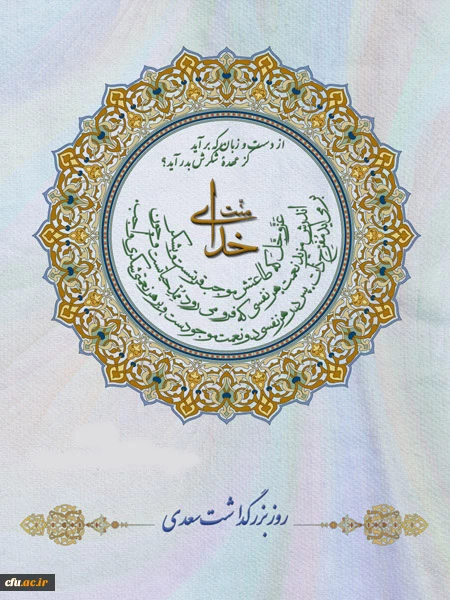 از دست و زبان که برآید
کز عهدهٔ شکرش بدر آید؟
منّت
خدای
عزّوجل که طاعتش موجب قربتست و به شکر
اندرش مزید نعمت هر نفسی که فرو می رود ممد حیاتست و چون
بر می آید مفرح ذات پس در هر نفسی دو نعمت موجودست و بر هر نعمتی شکری واجب
روز بزرگداشت سعدی
cfu.ac.ir